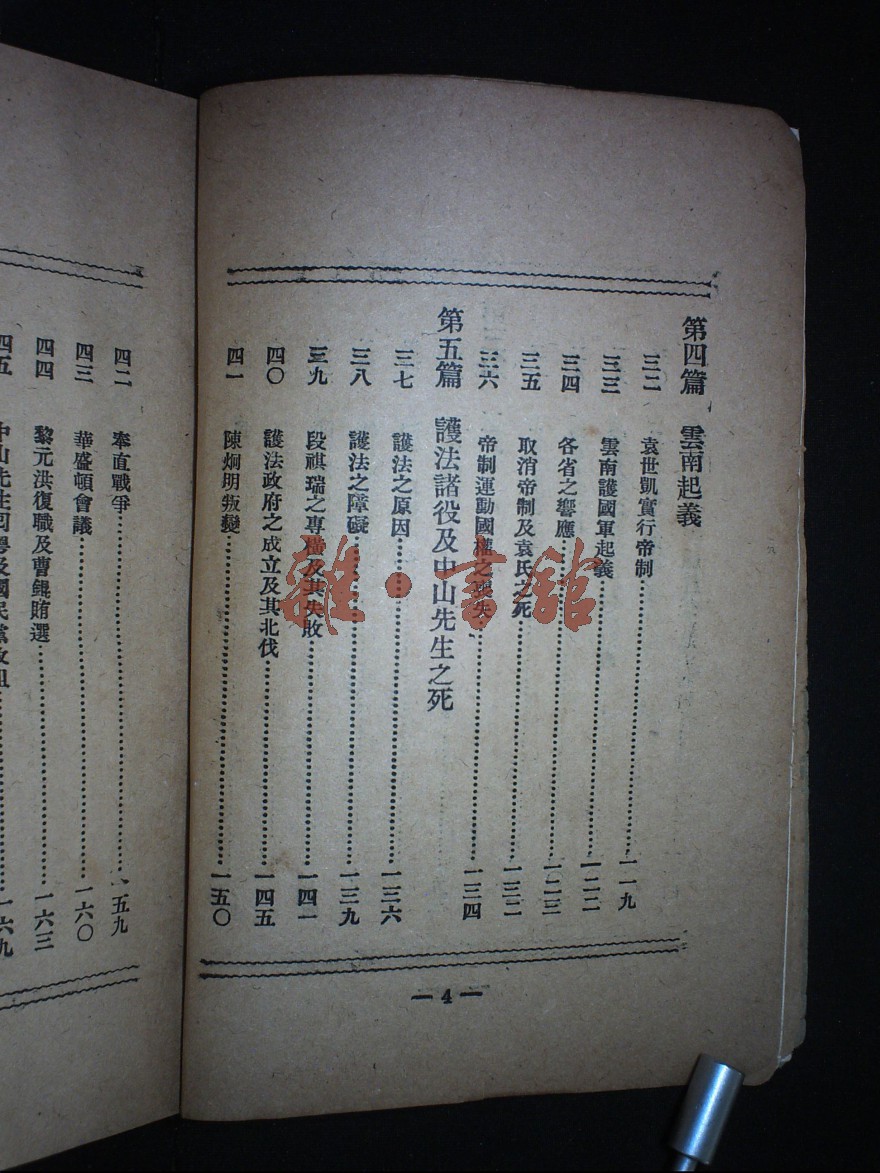 第四篇 雲南起義
三二 袁世凱實行帝制……一一九
三三 雲南護國軍起義……一二二
三四 各省之響應……一二三
三五 取消帝制及袁氏之死……一三二
三六 帝制運動國權之喪失……一三四
第五篇 護法諸役及中山先生之死
三七 護法之原因……一三六
三八 護法之障礙……一三九
三九 段祺瑞之專橫及其失敗……一四一
四〇 護法政府之成立及其北伐……一四五
四一 陳炯明叛變……一五〇
—4—
四二 奉直戰爭……一五九
四三 華盛頓會議……一六〇
四四 黎元洪復職及曹錕賄選……一六三
四五 中山先生回粵及國民黨改組……一六九
雜·書館